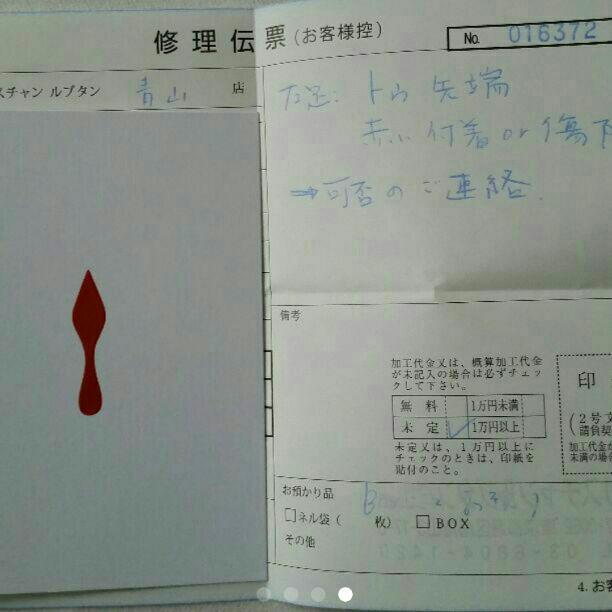 修理伝票(お客様控)
No. 016372
スチャン ルブタン 青山 店
左足: トウ先端
赤い付着or傷
→可否のご連絡.
備考
加工代金又は、概算加工代金
が未記入の場合は必ずチェッ
クして下さい。
無料 1万円未満
未定 1万円以上
未定又は、1万円以上に
チェックのときは、印紙を
貼付のこと。
印
(2号文
請負契
加工代金が
未満の場合
お預かり品
ネル袋( 枚) BOX
その他
4. お客